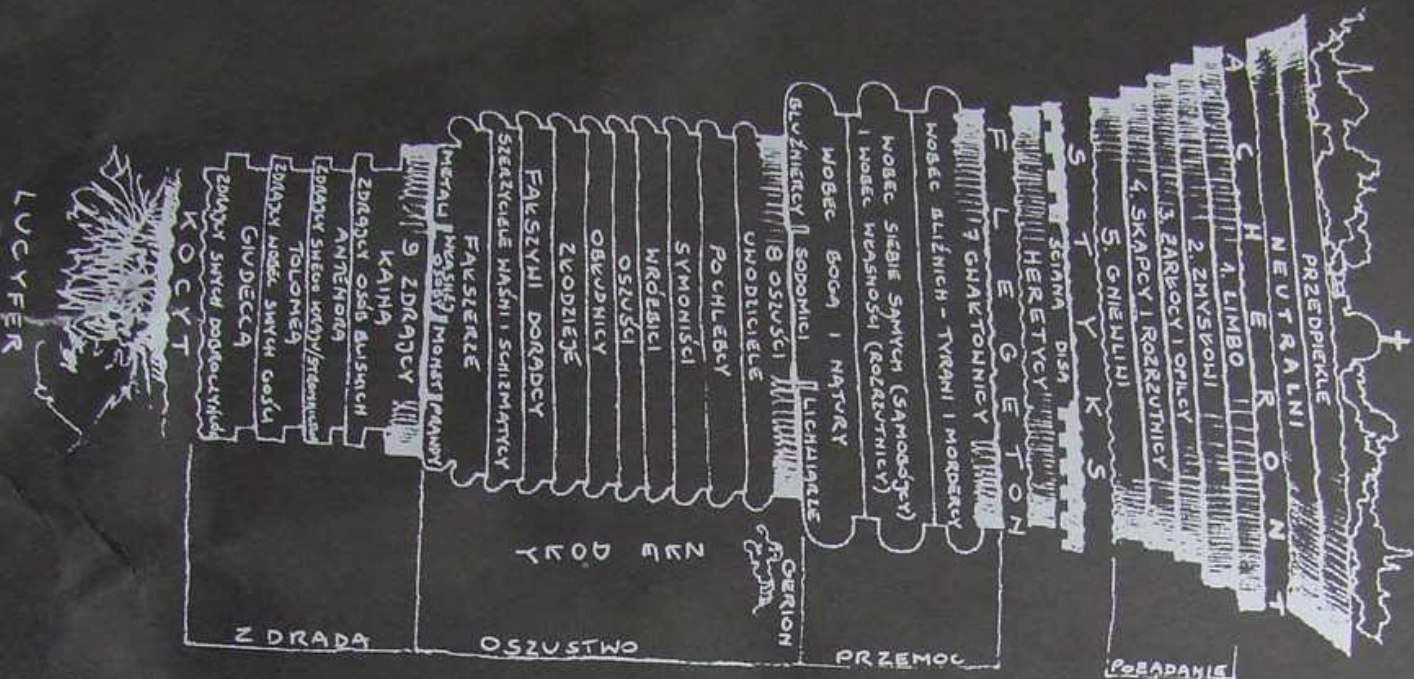 PRZEDPIEKLE
NEUTRALNI
ACHERONT
1. LIMBO
2. ZMYSŁOWI
3. ŻARŁOCY I OPILCY
4. SKĄPCY I ROZRZUTNICY
5. GNIEWLIWI
POŻĄDANIE
STYKS
ŚCIANA DISA
HERETYCY
FLEGETON
7 GWAŁTOWNICY
WOBEC BLIŹNICH - TYRANI I MORDERCY
WOBEC SIEBIE SAMYCH (SAMOBÓJCY)
I WOBEC WŁASNOŚCI (ROZRZUTNICY)
WOBEC BOGA I NATURY
BLUŹNIERCY | SODOMICI | LICHWIARZE
PRZEMOC
GERION
8 OSZUŚCI
UWODZICIELE
POCHLEBCY
SYMONIŚCI
WRÓŻBICI
OSZUŚCI
OBŁUDNICY
ZŁODZIEJE
FAŁSZYWI DORADCY
SZERZYCIELE WAŚNI I SCHIZMATYCY
FAŁSZERZE
METALI | OSOBY WŁASNEJ | MONET | PRAWDY
DOŁY
OSZUSTWO
9 ZDRAJCY
KAINA
ZDRAJCY OSÓB BLISKICH
ANTENORA
ZDRAJCY SWEGO KRAJU/STRONNICTWA
TOLOMEA
ZDRAJCY WOBEC SWYCH GOŚCI
GIUDECCA
ZDRAJCY SWYCH DOBROCZYŃCÓW
ZDRADA
KOCYT
LUCYFER